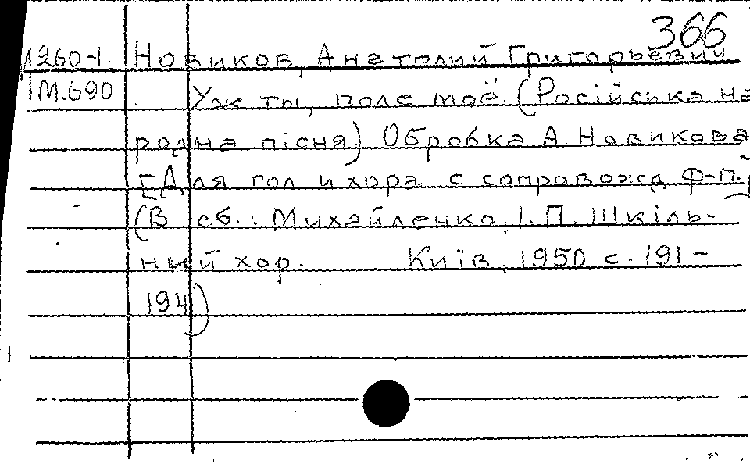 366
1260-1 Новиков, Анатолий Григорьевич
1М.690 Уж ты, поле моё (Російська на
родна пісня) Обробка А Новикова
[Для гол и хора с сопровожд ф-п.]
(В сб.: Михайленко, І. П. Шкіль-
ный хор. Київ, 1950 с. 191-
194)